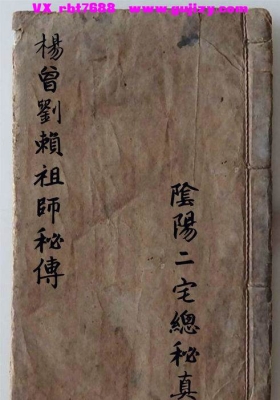 VX_rht7688 www.gujizy.com
陰陽二宅總秘真
楊曾劉賴祖師秘傳